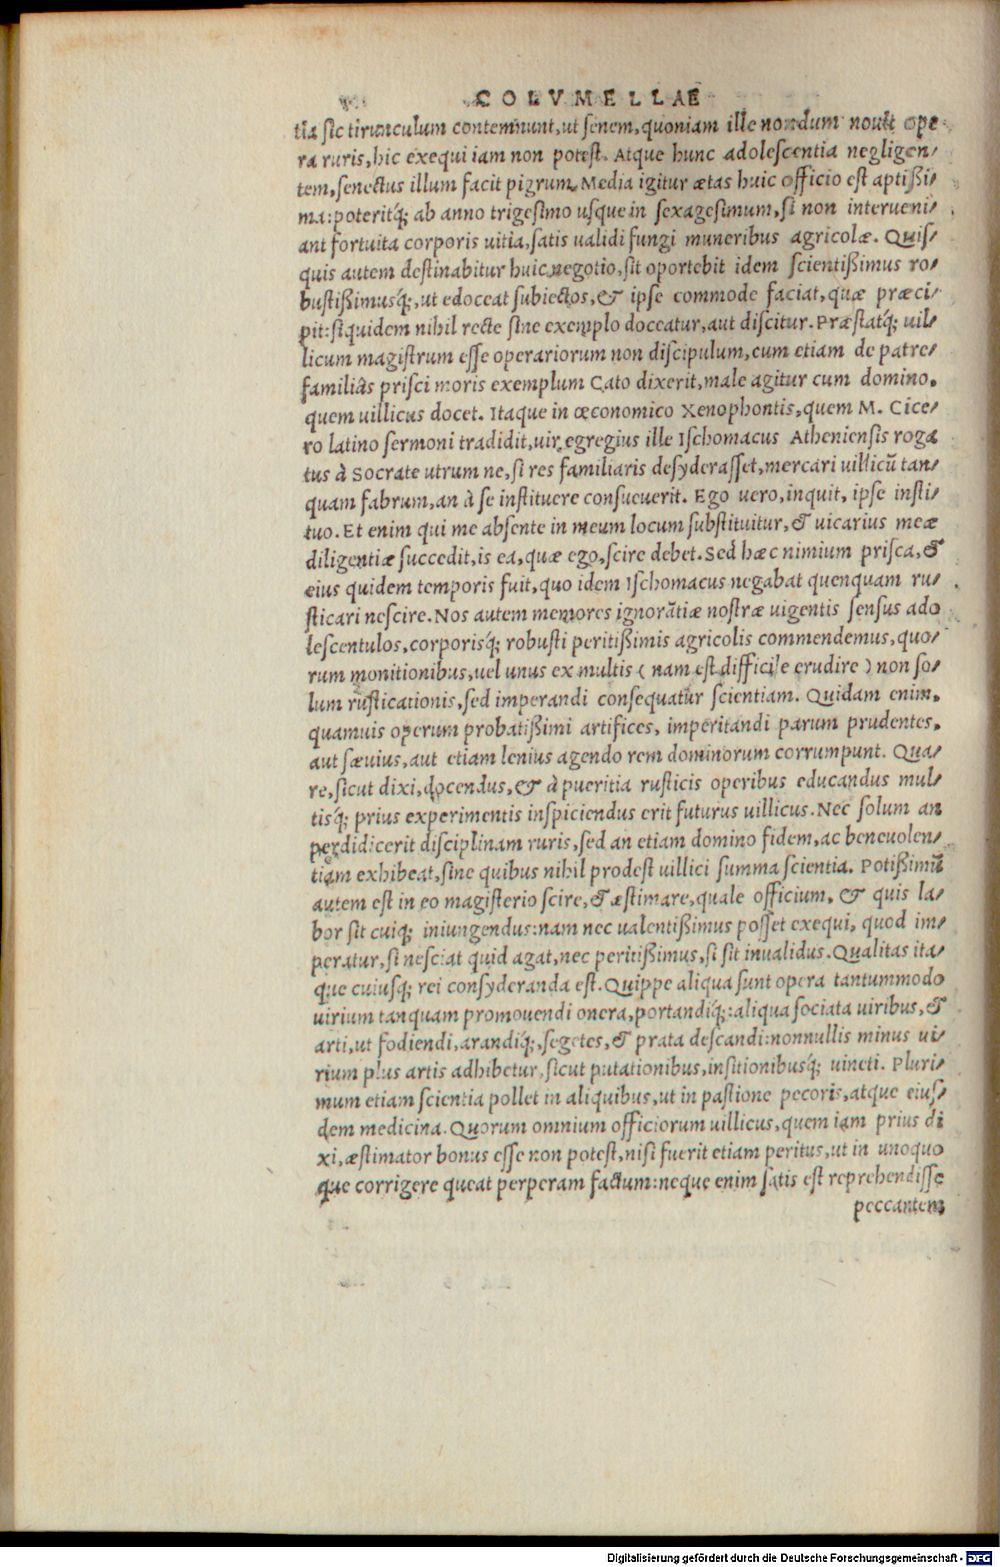 COLVMELLAE
tia sic tirunculum contemnunt, ut senem, quoniam ille nondum nouit ope-
ra ruris, hic exequi iam non potest. Atque hunc adolescentia negligen/
tem, senectus illum facit pigrum. Media igitur ætas huic officio est aptißi/
ma: poteritq́; ab anno trigesimo usque in sexagesimum, si non interueni/
ant fortuita corporis uitia, satis ualidi fungi muneribus agricolæ. Quis/
quis autem destinabitur huic negotio, sit oportebit idem scientißimus ro/
bustißimusq́;, ut edoceat subiectos, & ipse commode faciat, quæ præci/
pit: siquidem nihil recte sine exemplo doceatur, aut discitur. Præstatq́; uil/
licum magistrum esse operariorum non discipulum, cum etiam de patre/
familiâs prisci moris exemplum Cato dixerit, male agitur cum domino,
quem uillicus docet. Itaque in œconomico Xenophontis, quem M. Cice/
ro latino sermoni tradidit, uir egregius ille Ischomacus Atheniensis roga
tus à Socrate utrum ne, si res familiaris desyderasset, mercari uillicũ tan/
quam fabrum, an à se instituere consueuerit. Ego uero, inquit, ipse insti/
tuo. Et enim qui me absente in meum locum substituitur, & uicarius meæ
diligentiæ succedit, is ea, quæ ego, scire debet. Sed hæc nimium prisca, &
eius quidem temporis fuit, quo idem Ischomacus negabat quenquam ru/
sticari nescire. Nos autem memores ignorãtiæ nostræ uigentis sensus ado
lescentulos, corporisq́; robusti peritißimis agricolis commendemus, quo/
rum monitionibus, uel unus ex multis ( nam est difficile erudire ) non so/
lum rusticationis, sed imperandi consequatur scientiam. Quidam enim,
quamuis operum probatißimi artifices, imperitandi parum prudentes,
aut sæuius, aut etiam lenius agendo rem dominorum corrumpunt. Qua/
re, sicut dixi, docendus, & à pueritia rusticis operibus educandus mul/
tisq́; prius experimentis inspiciendus erit futurus uillicus. Nec solum an
perdidicerit disciplinam ruris, sed an etiam domino fidem, ac beneuolen/
tiam exhibeat, sine quibus nihil prodest uillici summa scientia. Potißimũ
autem est in eo magisterio scire, & æstimare, quale officium, & quis la/
bor sit cuiq́; iniungendus: nam nec ualentißimus posset exequi, quod im/
peratur, si nesciat quid agat, nec peritißimus, si sit inualidus. Qualitas ita/
que cuiusq́; rei consyderanda est. Quippe aliqua sunt opera tantummodo
uirium tanquam promouendi onera, portandiq́;: aliqua sociata uiribus, &
arti, ut fodiendi, arandiq́;, segetes, & prata desecandi: nonnullis minus ui/
rium plus artis adhibetur, sicut putationibus, insitionibusq́; uineti. Pluri/
mum etiam scientia pollet in aliquibus, ut in pastione pecoris, atque eius/
dem medicina. Quorum omnium officiorum uillicus, quem iam prius di
xi, æstimator bonus esse non potest, nisi fuerit etiam peritus, ut in unoquo
que corrigere queat perperam factum: neque enim satis est reprehendisse
peccantem
Digitalisierung gefördert durch die Deutsche Forschungsgemeinschaft - DFG